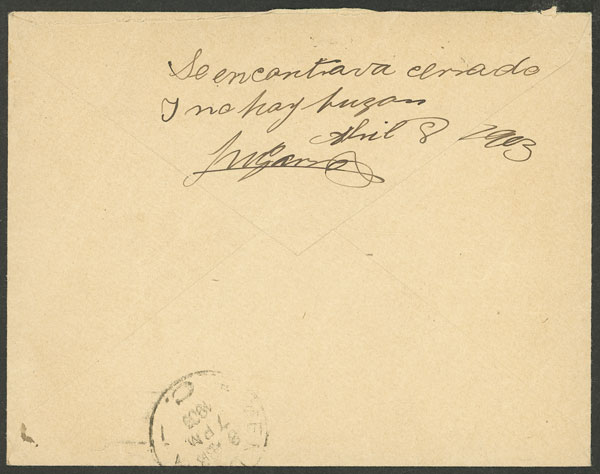 Se encontrava cerrado
Y no hay buzon
Abril 8 1903
7 P.M.